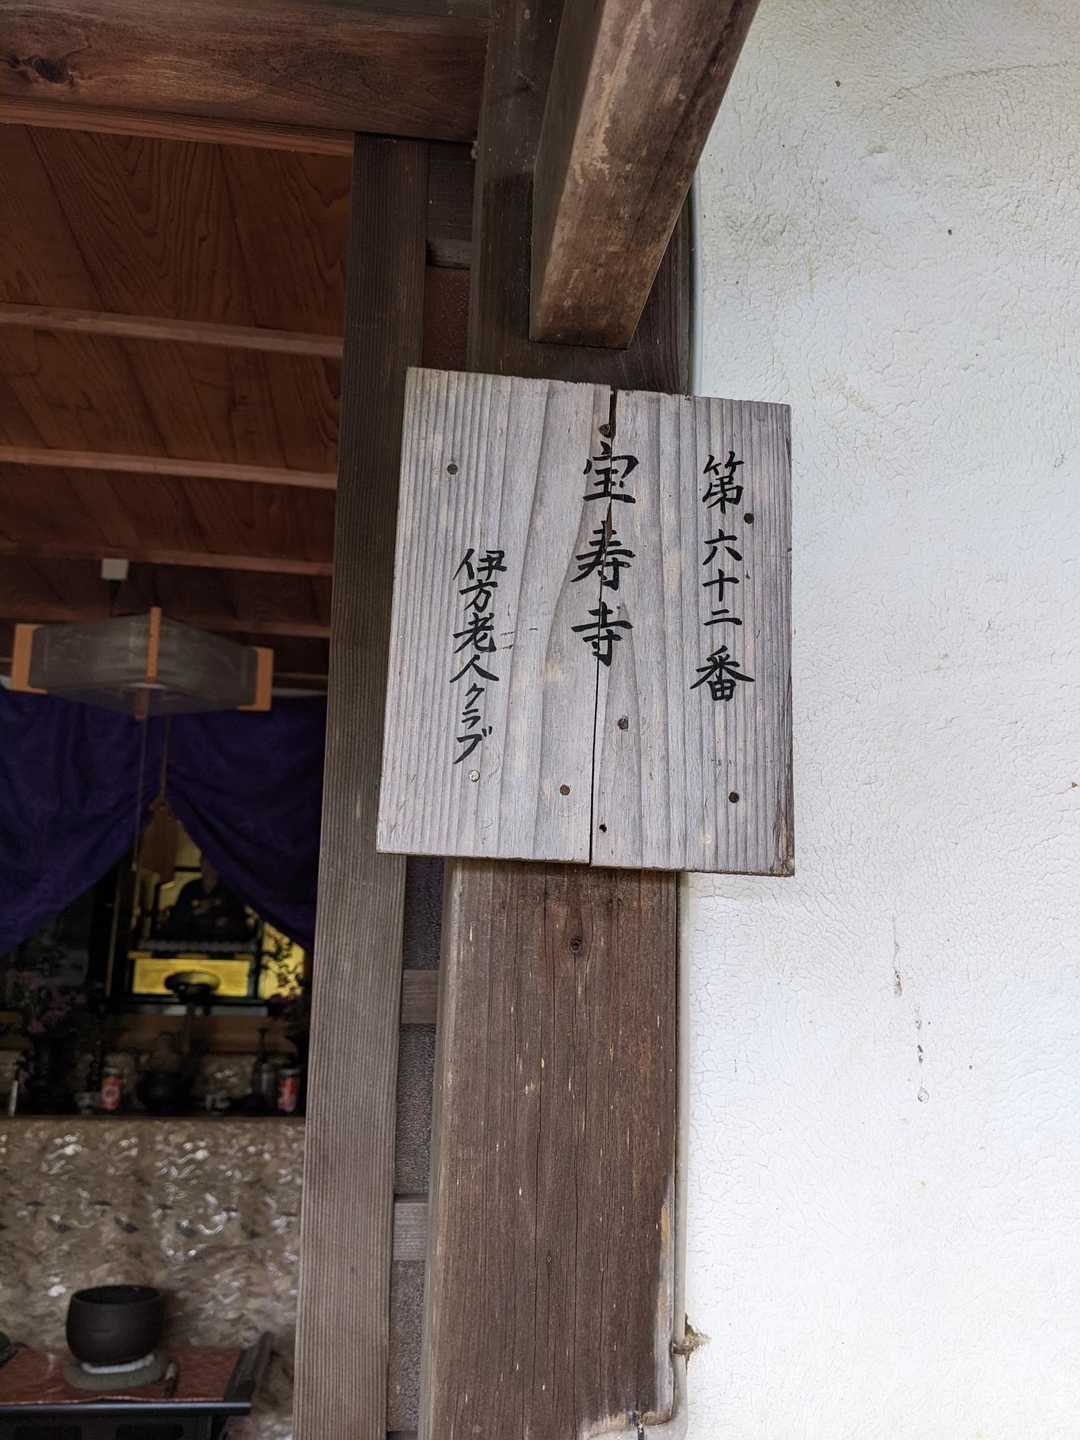 第六十二番
宝寿寺
伊方老人クラブ